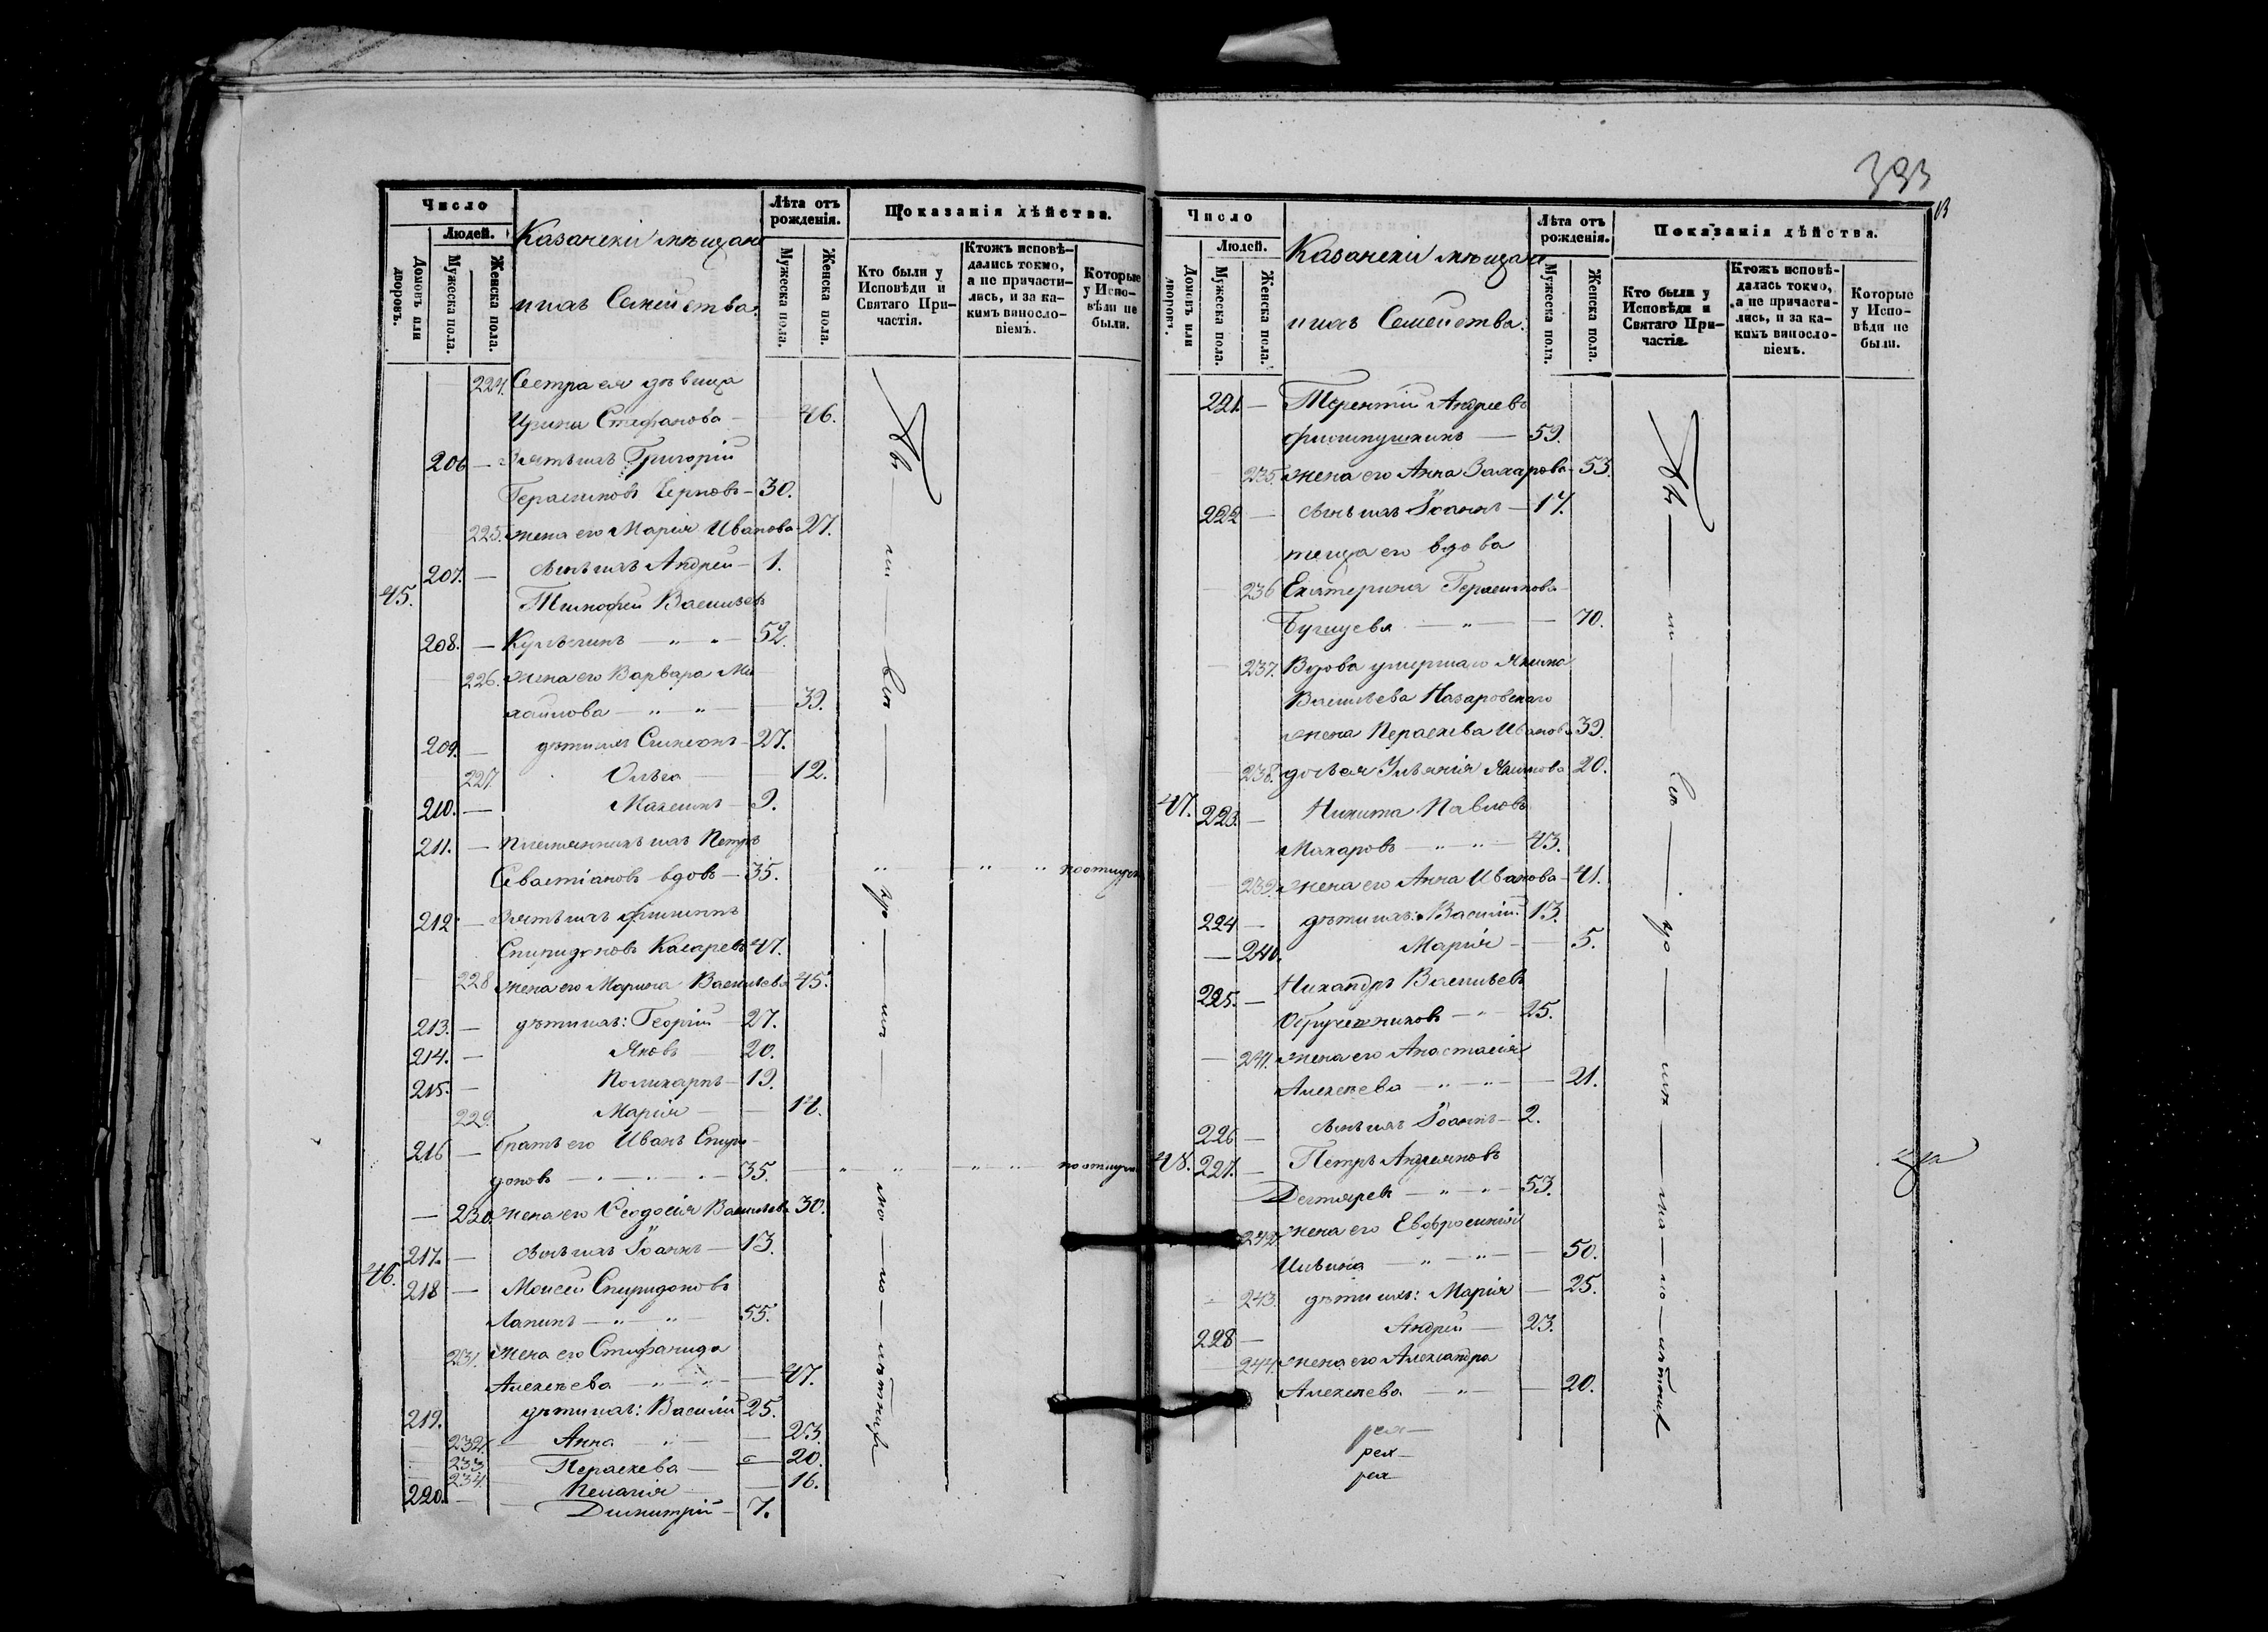 Число
Людей.
Домовъ или дворовъ.
Мужеска пола.
Женска пола.
Казанскіи мѣщане
и ихъ Семейства.
Лѣта отъ рожденія.
Мужеска пола.
Женска пола.
Показанія дѣйства.
Кто были у Исповѣди и Святаго Причастія.
Ктожъ исповѣдались токмо, а не причастились, и за какимъ винословіемъ.
Которые у Исповѣди не были.
224. Сестра ея дѣвица
Ирина Стефанова — 46.
206 — Зять ихъ Григорій
Герасимовъ Черновъ — 30.
225. жена его Марія Иванова 27.
207. — сынъ ихъ Андрей — 1.
45. Тимофей Васильевъ
208. — — " — " — 52.
226. жена его Варвара Ми
хайлова — " — " — 39.
209. — дѣти ихъ Симеонъ — 27.
227. Ольга — 12.
210. — Максимъ — 9.
211. — племянникъ ихъ Петръ
Севастіановъ вдовъ — 35. " — " "
212. — Зять ихъ Филиппъ
Спиридоновъ 47.
228 жена его Марина Васильева 45.
213. — дѣти ихъ: Георгій — 27.
214. — Яковъ — 20.
215. — Поликарпъ — 19.
229. Марія — 17.
216 — братъ его Иванъ Спири
доновъ — " — " — 35. — " " — " "
— 230. жена его Ѳеодосія Васильева 30.
217. — сынъ ихъ Іоаннъ — 13.
46. 218 — Моисей Спиридоновъ
Лапинъ — " — " — 55.
231. жена его Стефанида
Алексѣева — " — " — 47.
219. дѣти ихъ: Василій 25.
232. Анна — " — 23.
233 Параскева — 20.
234. Пелагія — 16.
220. — Димитрій — 7.
333
Число
Людей.
Домовъ или дворовъ.
Мужеска пола.
Женска пола.
Казанскіи мѣщане
и ихъ Семейства.
Лѣта отъ рожденія.
Мужеска пола.
Женска пола.
Показанія дѣйства.
Кто были у Исповѣди и Святаго Причастія.
Ктожъ исповѣдались токмо, а не причастились, и за какимъ винословіемъ.
Которые у Исповѣди не были.
221. — Терентій Андреевъ
— 59.
235. жена его Анна Захарова 53.
222 — сынъ ихъ Іоаннъ — 17.
теща его вдова
236 Екатерина Герасимова
— " — 70.
237. Вдова умершаго Якима
Васильева Назаровскаго
жена Параскева Иванова 39.
238. дочь ея Ульянія Якимова 20.
47. 223. — Никита Павловъ
Макаровъ — " — " — 43.
239. жена его Анна Иванова — 41.
224 — дѣти ихъ: Василій 13.
— 240. Марія — 5.
225. — Никандръ Васильевъ
Обручниковъ — " 25.
— 241. жена его Анастасія
Алексѣева — " — " — 21.
226 — сынъ ихъ Іоаннъ — 2.
48. 227. — Петръ Андреяновъ
Дегтяревъ — " — " 53.
242 жена его Евфросинія
Ильина — " — " — 50.
243. дѣти ихъ: Марія — 25.
228 — Андрей — 23.
244. жена его Александра
Алексѣева — " — 20.